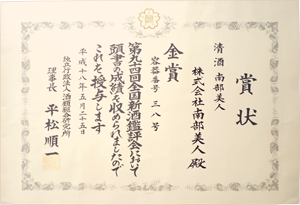 賞状
清酒 南部美人
株式会社南部美人殿
金賞
容器番号 三八号
第九十四回全国新酒鑑評会において
頭書の成績を収められましたので
これを授与します
平成十八年五月二十三日
独立行政法人酒類総合研究所
理事長 平松順一